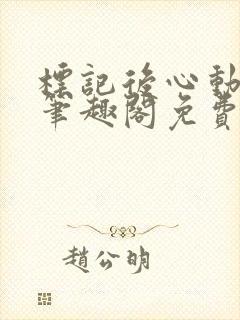 標記後心動
筆趣閣免費
趙公明